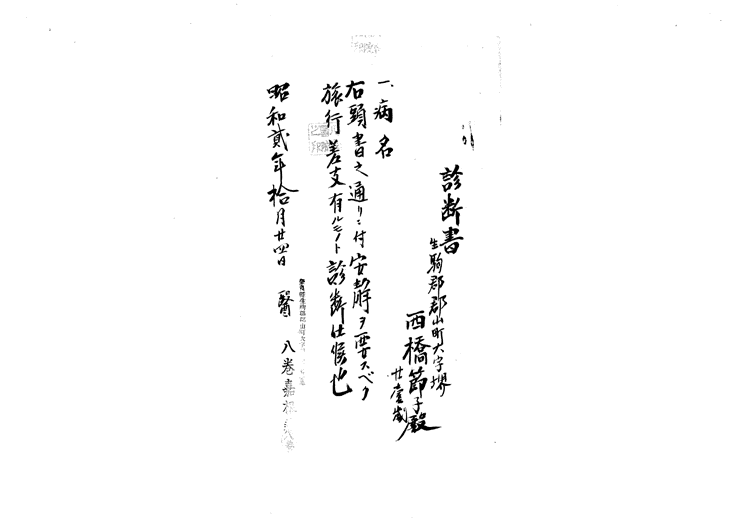 診断書
生駒郡郡山町大字堺
西橋節子殿
廿壹歳
一、病名
右頭書之通リニ付安静ヲ要スベク
旅行差支有ルモノト診断仕候也
昭和貳年拾月廿四日
醫 八巻嘉